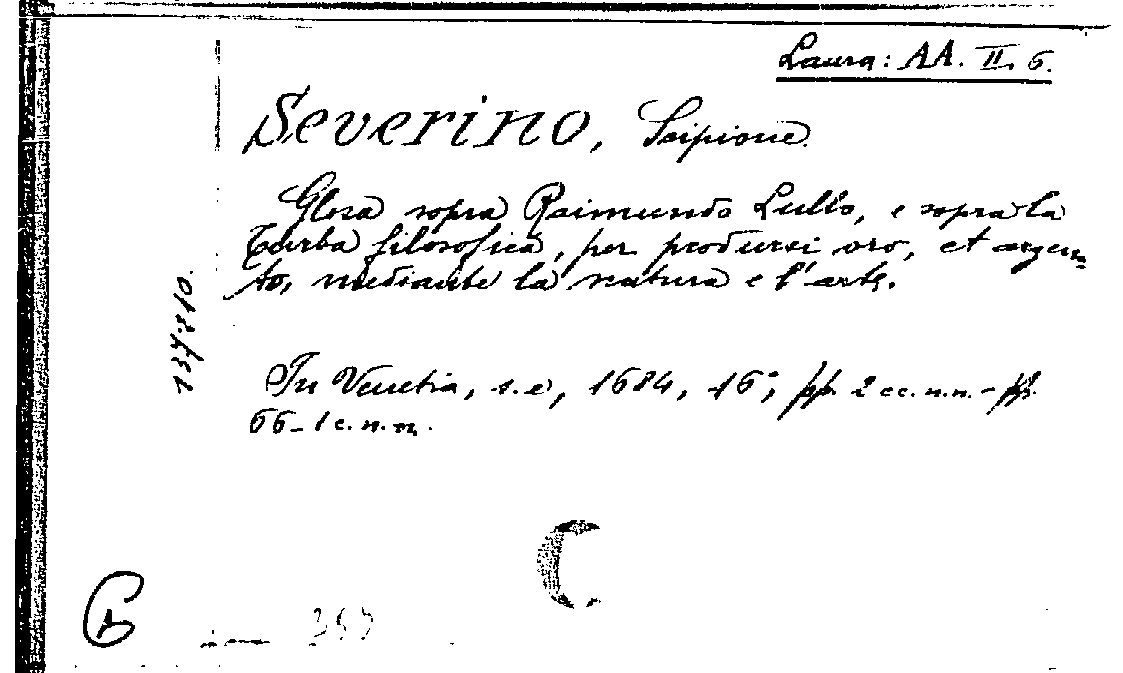 Laura: AA. II. 6.
Severino, Scipione
Glosa sopra Raimundo Lullo, e sopra la
Turba filosofica, per prodursi oro, et argen-
to, mediante la natura e l'arte.
In Venetia, s.e, 1684, 16°, pp. 2 cc. n.n. - pp.
66 - 1 c. n. n.